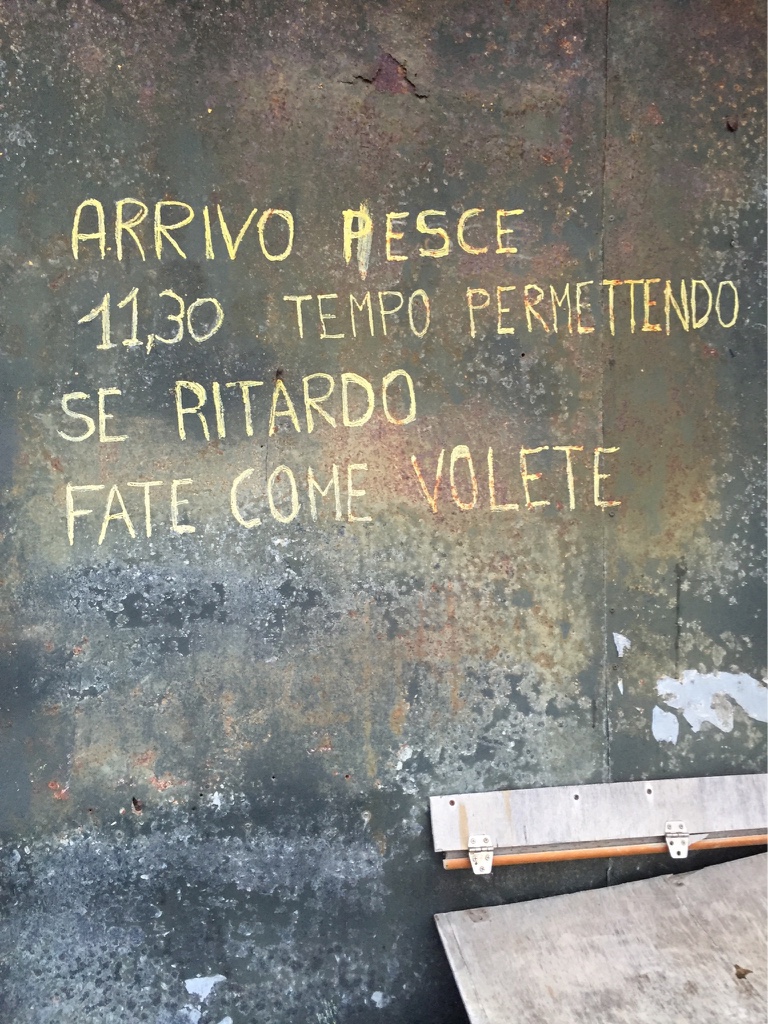 ARRIVO PESCE
11,30 TEMPO PERMETTENDO
SE RITARDO
FATE COME VOLETE